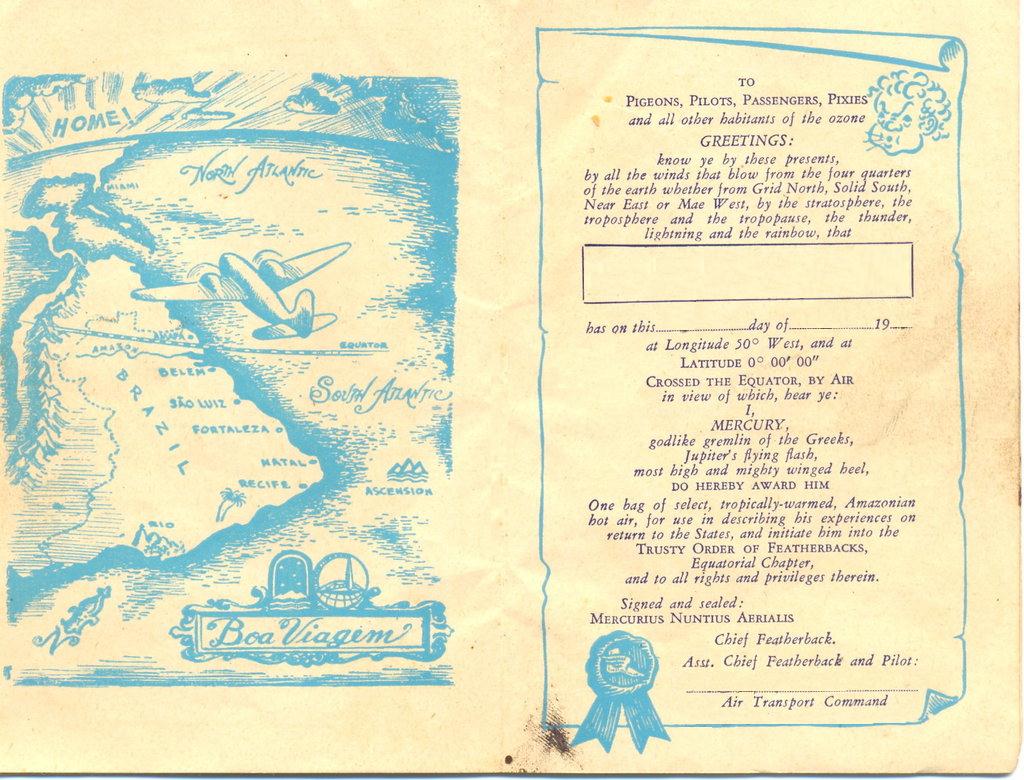 HOME!
NORTH ATLANTIC
MIAMI
EQUATOR
AMAPÁ
AMAZON
BELEM
SOUTH ATLANTIC
BRAZIL
SÃO LUIZ
FORTALEZA
NATAL
RECIFE
ASCENSION
RIO
N
Boa Viagem
TO
PIGEONS, PILOTS, PASSENGERS, PIXIES
and all other habitants of the ozone
GREETINGS:
know ye by these presents,
by all the winds that blow from the four quarters
of the earth whether from Grid North, Solid South,
Near East or Mae West, by the stratosphere, the
troposphere and the tropopause, the thunder,
lightning and the rainbow, that
has on this....................day of....................19......
at Longitude 50° West, and at
LATITUDE 0° 00' 00"
CROSSED THE EQUATOR, BY AIR
in view of which, hear ye:
I,
MERCURY,
godlike gremlin of the Greeks,
Jupiter's flying flash,
most high and mighty winged heel,
DO HEREBY AWARD HIM
One bag of select, tropically-warmed, Amazonian
hot air, for use in describing his experiences on
return to the States, and initiate him into the
TRUSTY ORDER OF FEATHERBACKS,
Equatorial Chapter,
and to all rights and privileges therein.
Signed and sealed:
MERCURIUS NUNTIUS AERIALIS
Chief Featherback.
Asst. Chief Featherback and Pilot:
Air Transport Command